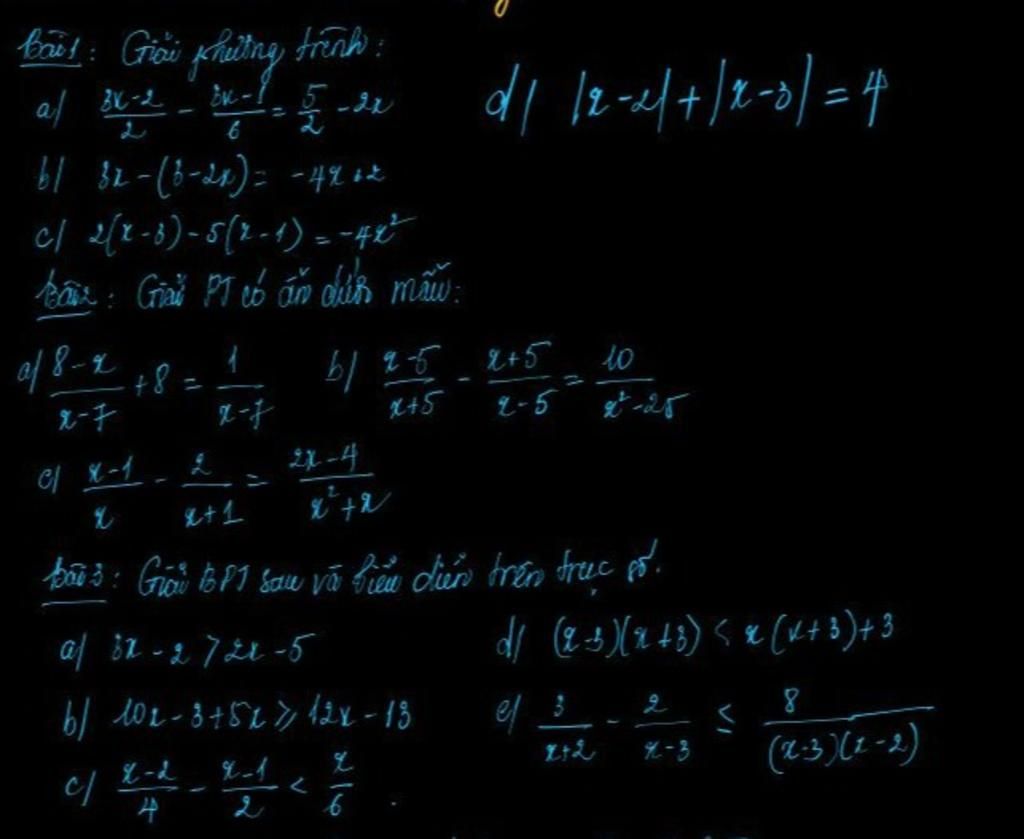 Bài 1: Giải phương trình:
a/ (3x-2)/2 - (3x-1)/6 = 5/2 - 2x
d/ |x-2|+|x-3| = 4
b/ 3x-(3-2x) = -4x+2
c/ 2(x-3)-5(x-1) = -4x²
Bài 2: Giải PT có ẩn dưới mẫu:
a/ (8-x)/(x-7) + 8 = 1/(x-7)
b/ (x-5)/(x+5) - (x+5)/(x-5) = 10/(x²-25)
c/ (x-1)/x - 2/(x+1) = (2x-4)/(x²+x)
Bài 3: Giải BPT sau và biểu diễn trên trục số.
a/ 3x-2 > 2x-5
d/ (x-3)(x+3) < x(x+3)+3
b/ 10x-3+5x ≥ 12x-13
e/ 3/(x+2) - 2/(x-3) ≤ 8/((x-3)(x-2))
c/ (x-2)/4 - (x-1)/2 < x/6.